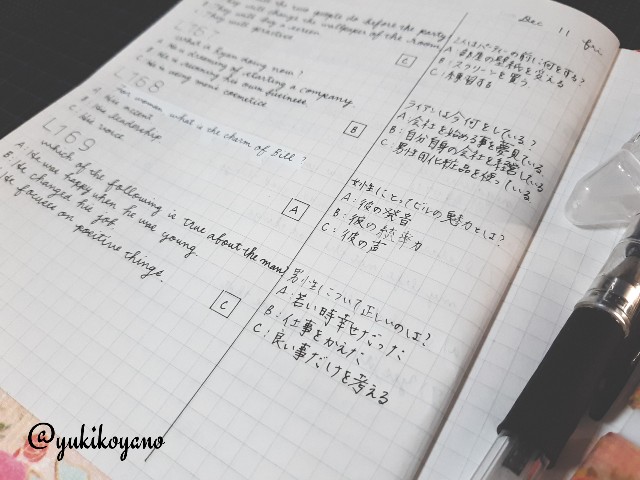 What will the two people do before the party
They will change the wallpaper of the room
They will buy a screen
They will practice
C
LT67
What is Ryan doing now?
A: He is dreaming of starting a company.
B: He is running his own business.
C: He is using men's cosmetics
B
LT68
For women, what is the charm of Bill?
His accent
B: His leadership.
C: His voice
A
LT69
which of the following is true about the man?
A: He was happy when he was young.
B: He changed his job
He focuses on positive things.
C
Dec 11 Fri
2人はパーティーの前に何をする?
A 部屋の壁紙を変える
B:スクリーンを買う
C:練習する
ライアンは今何をしている?
A 会社を始める事を夢見ている
B:自分自身の会社を経営している
C 男性用化粧品を使っている
女性にとってビルの魅力とは?
A:彼の発音
B:彼の統率力
C:彼の声
男性について正しいのは?
A:若い時幸せだった
B:仕事をかえた
C:良い事だけを考える
@yukikoyano